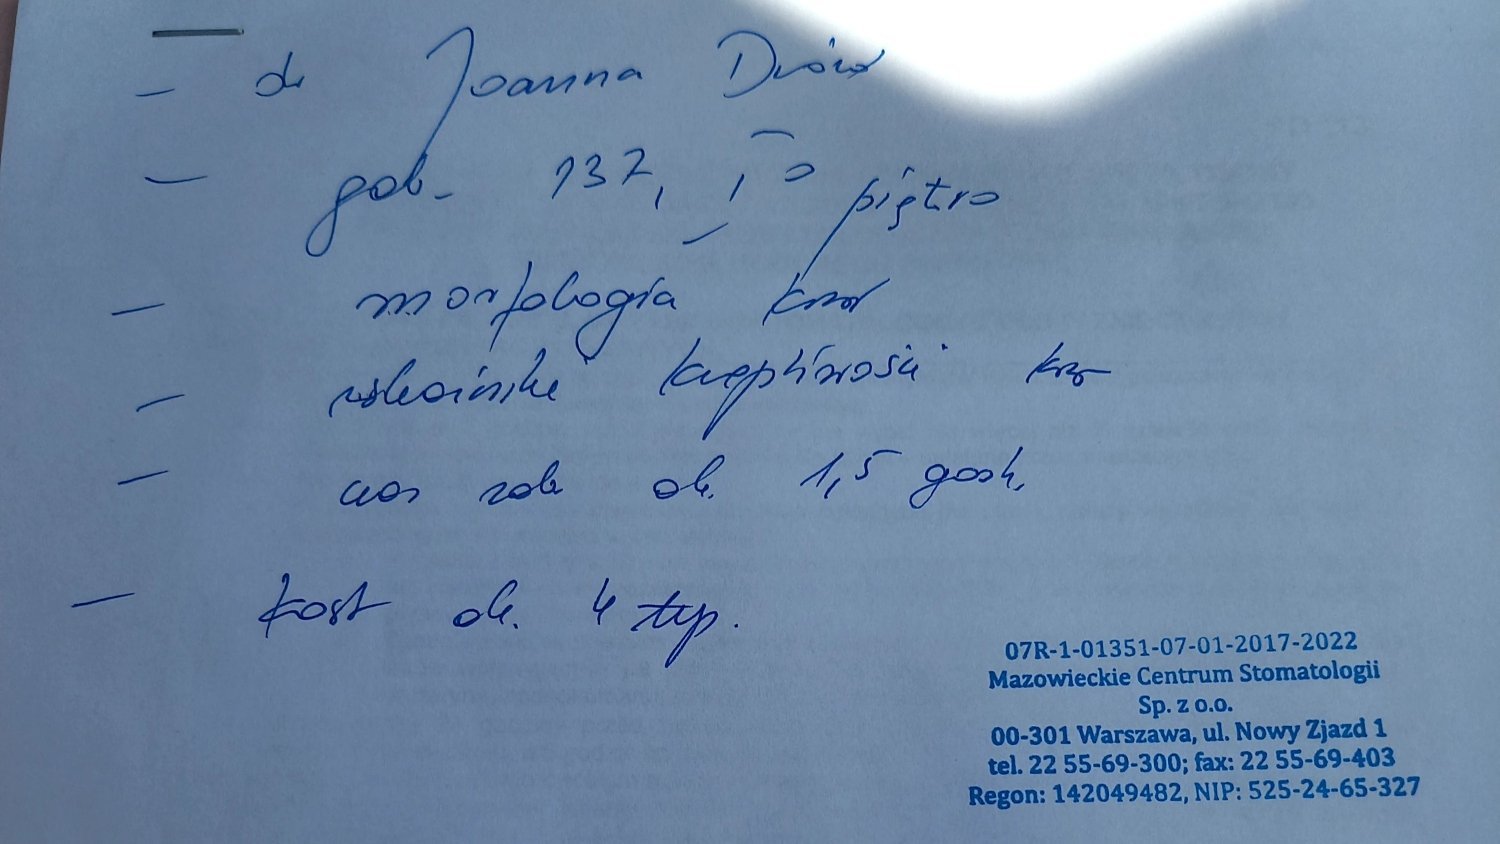 - dr Joanna
- gab. 137, I° piętro
- morfologia krwi
- wskaźniki krzepliwości krwi
- czas zab ok. 1,5 godz.
- koszt ok. 4 tyś.
07R-1-01351-07-01-2017-2022
Mazowieckie Centrum Stomatologii
Sp. z o.o.
00-301 Warszawa, ul. Nowy Zjazd 1
tel. 22 55-69-300; fax: 22 55-69-403
Regon: 142049482, NIP: 525-24-65-327